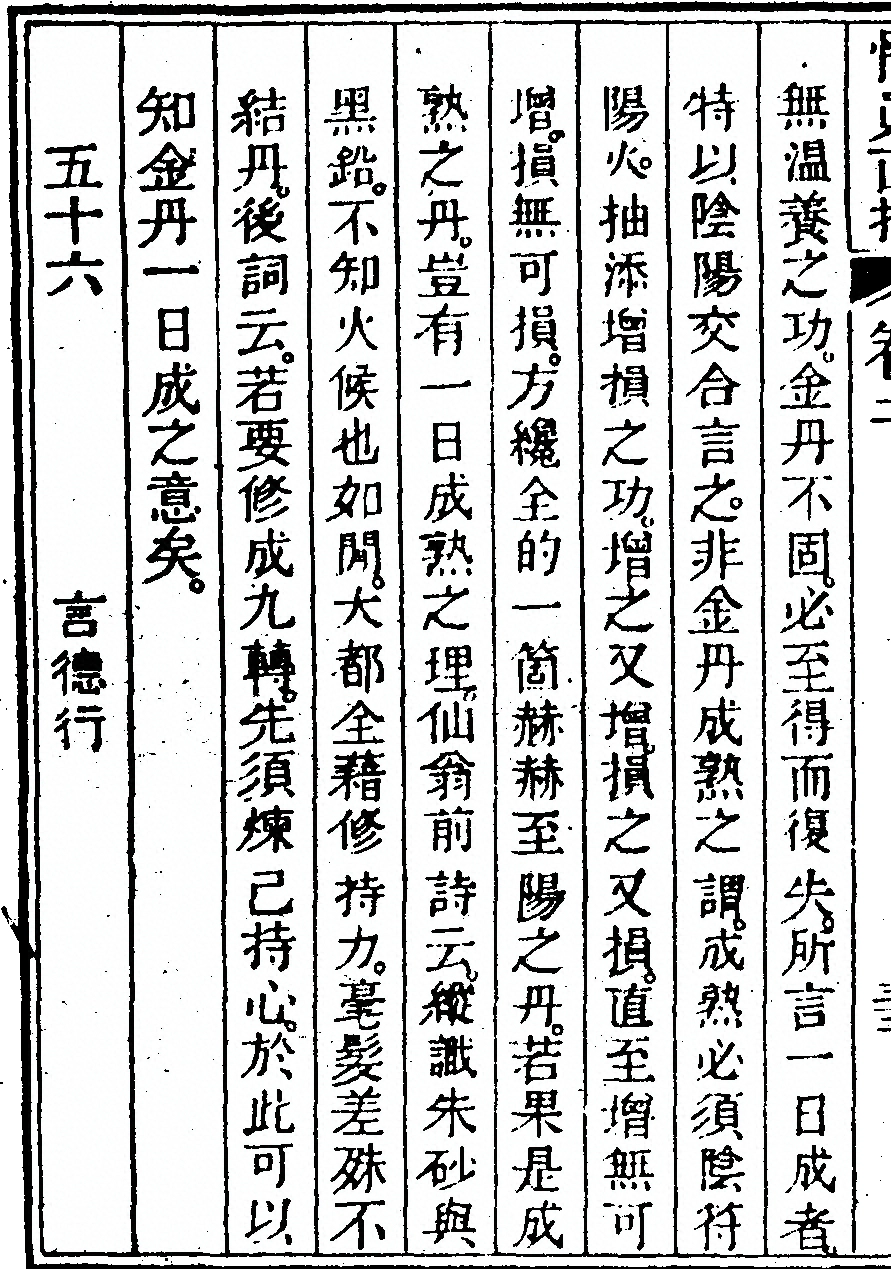 無温養之功。金丹不固。必至得而復失。所言一日成者。
特以陰陽交合言之。非金丹成熟之謂。成熟必須陰符
陽火。抽添增損之功。增之又增。損之又損。直至增無可
增。損無可損。方纔全的一箇赫赫至陽之丹。若果是成
熟之丹。豈有一日成熟之理。仙翁前詩云。縱識朱砂與
黑鉛。不知火候也如閒。大都全藉修持力。毫髮差殊不
結丹。後詞云。若要修成九轉。先須煉己持心。於此可以
知金丹一日成之意矣。
五十六　言德行